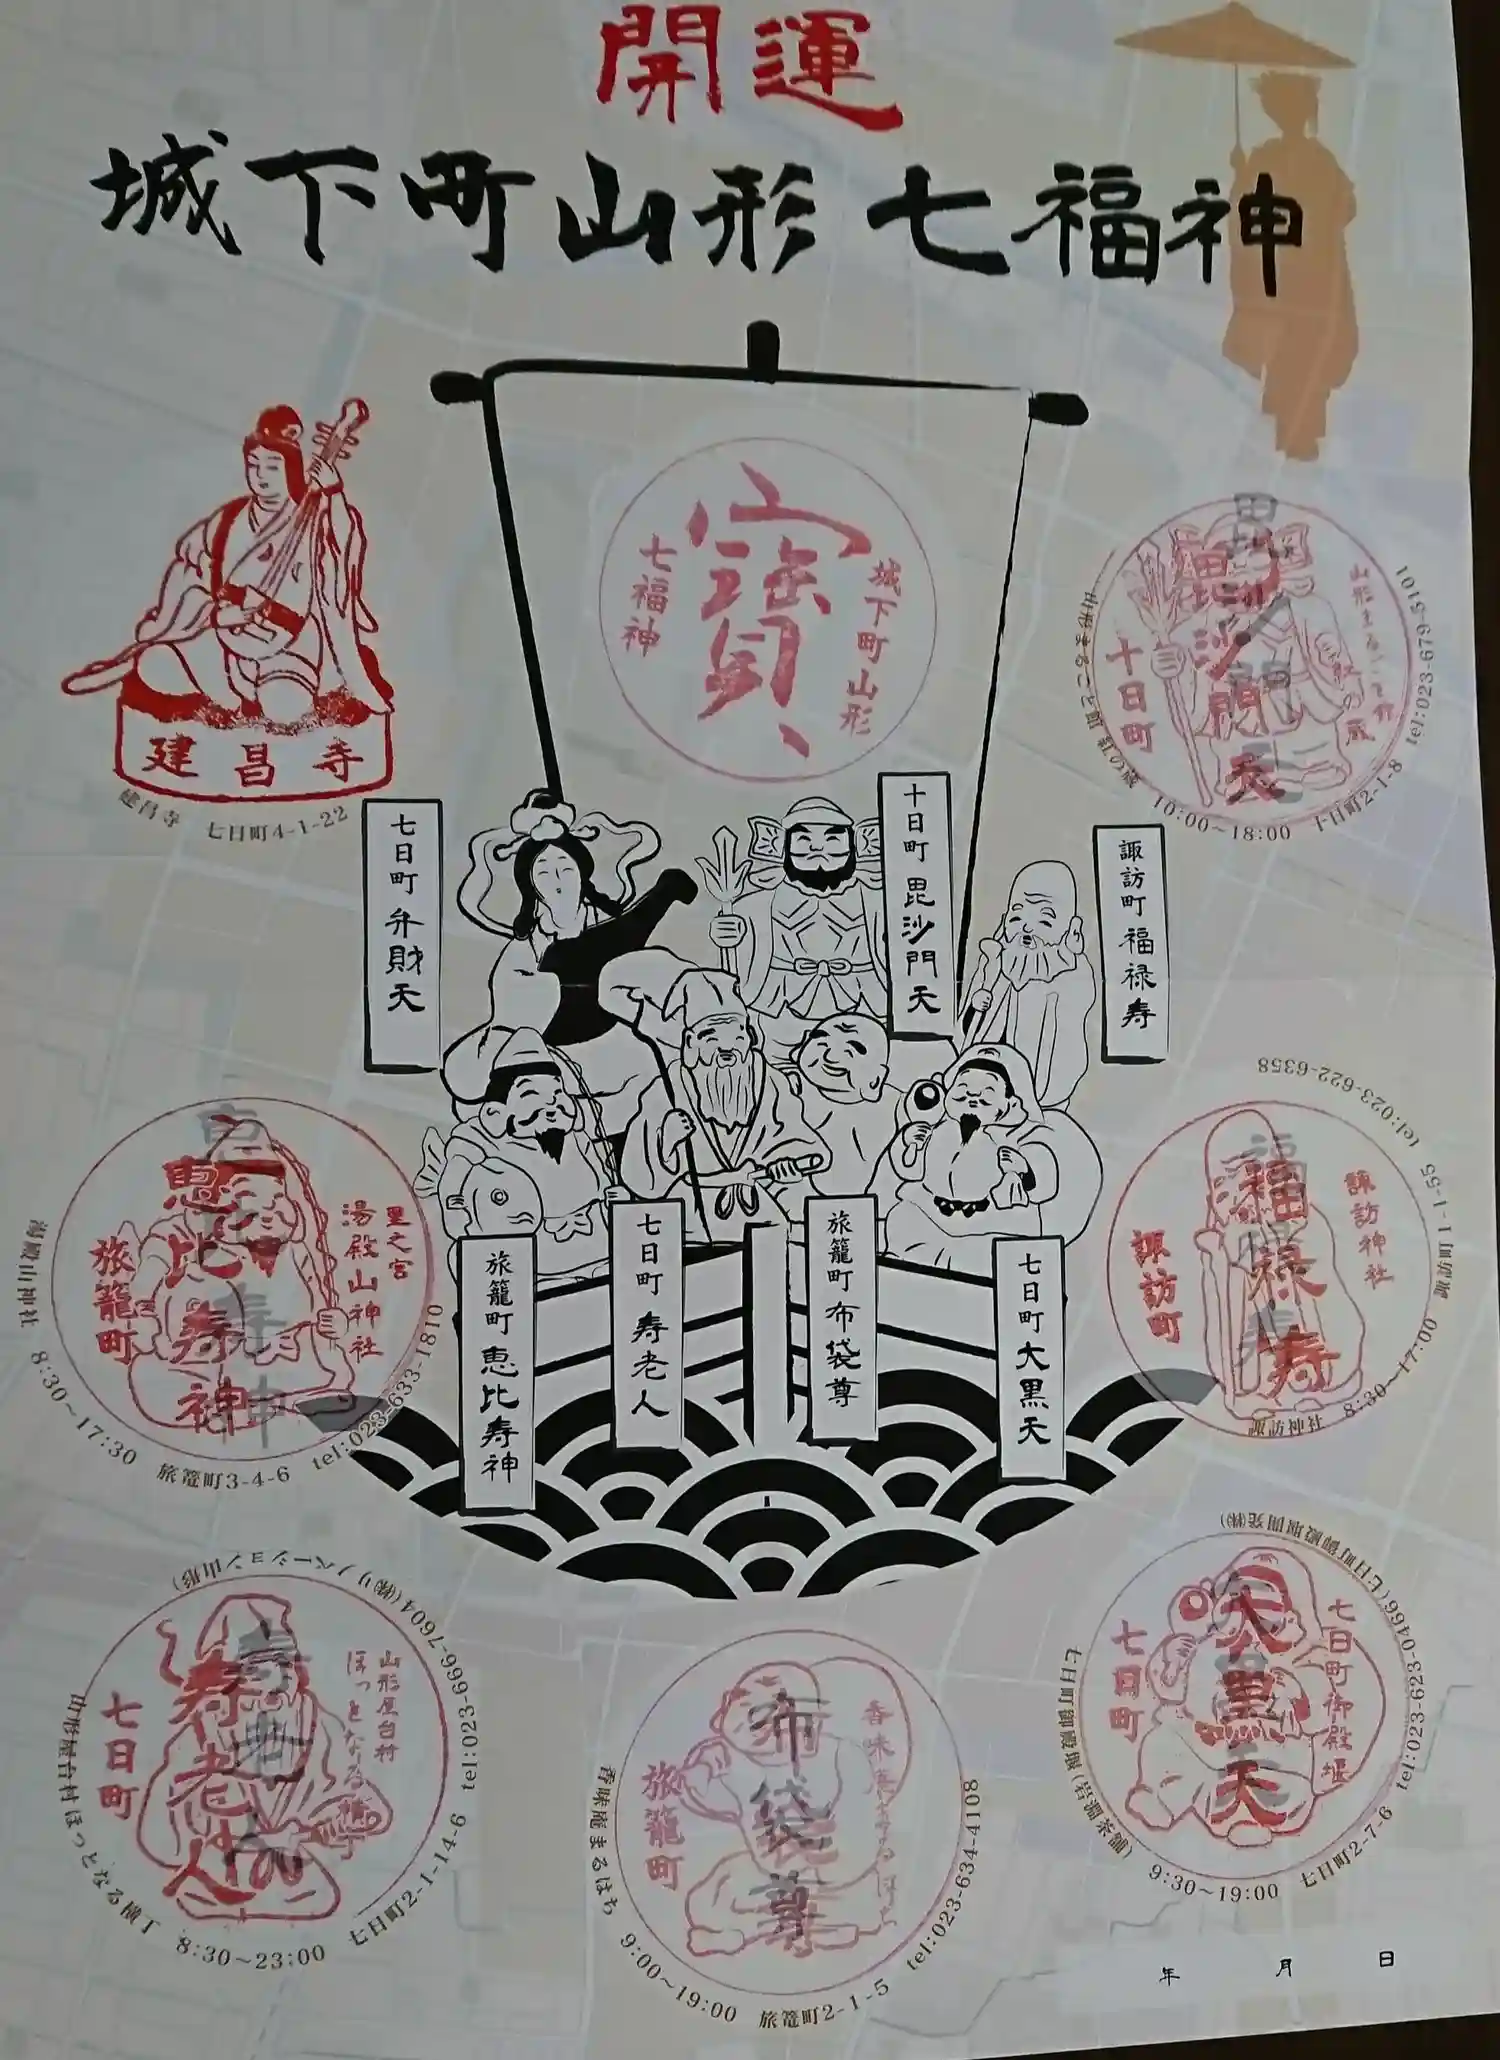 開運
城下町山形 七福神
建昌寺
建昌寺 七日町4-1-22
寶
七福神
城下町山形
毘沙門天
毘沙門天
十日町
山形まるごと館 紅の蔵 10:00~18:00 十日町2-1-8 tel:023-679-5101
七日町 弁財天
十日町 毘沙門天
諏訪町 福禄寿
旅籠町 恵比寿神
七日町 寿老人
旅籠町 布袋尊
七日町 大黒天
恵比寿神
恵比寿神
旅籠町
里之宮
湯殿山神社
湯殿山神社 8:30~17:30 旅篭町3-4-6 tel:023-633-1810
福禄寿
福禄寿
諏訪町
諏訪神社
諏訪神社 8:30~17:00 諏訪町1-1-55 tel:023-622-6358
寿老人
寿老人
七日町
山形屋台村
ほっとなる横丁
山形屋台村 ほっとなる横丁 8:30~23:00 七日町2-1-14-6 tel:023-666-7604(㈱リノベーション山形)
布袋尊
旅籠町
香味庵まるはち 9:00~19:00 旅篭町2-1-5 tel:023-634-4108
大黒天
大黒天
七日町
七日町御殿堰
七日町御殿堰(岩淵茶舗) 9:30~19:00 七日町2-7-6 tel:023-623-0466(七日町御殿堰開発㈱)
年 月 日